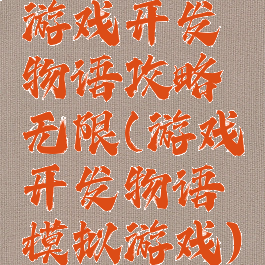 游戏开发
物语攻略
无限(游戏
开发物语
模拟游戏)